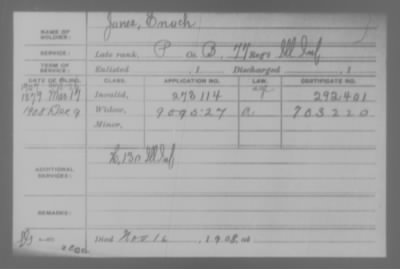 NAME OF SOLDIER: Jones, Enoch
SERVICE: Late rank, P Co. B, 77 Reg't Ill Inf
TERM OF SERVICE: Enlisted , 1 Discharged , 1
DATE OF FILING. CLASS. APPLICATION NO. LAW. CERTIFICATE NO.
1879 Mar 17 Invalid, 278114 292401
1908 Dec 9 Widow, 909527 a 703220
Minor,
ADDITIONAL SERVICES: K, 130 Ill Inf
REMARKS:
Died Nov 16, 1908,